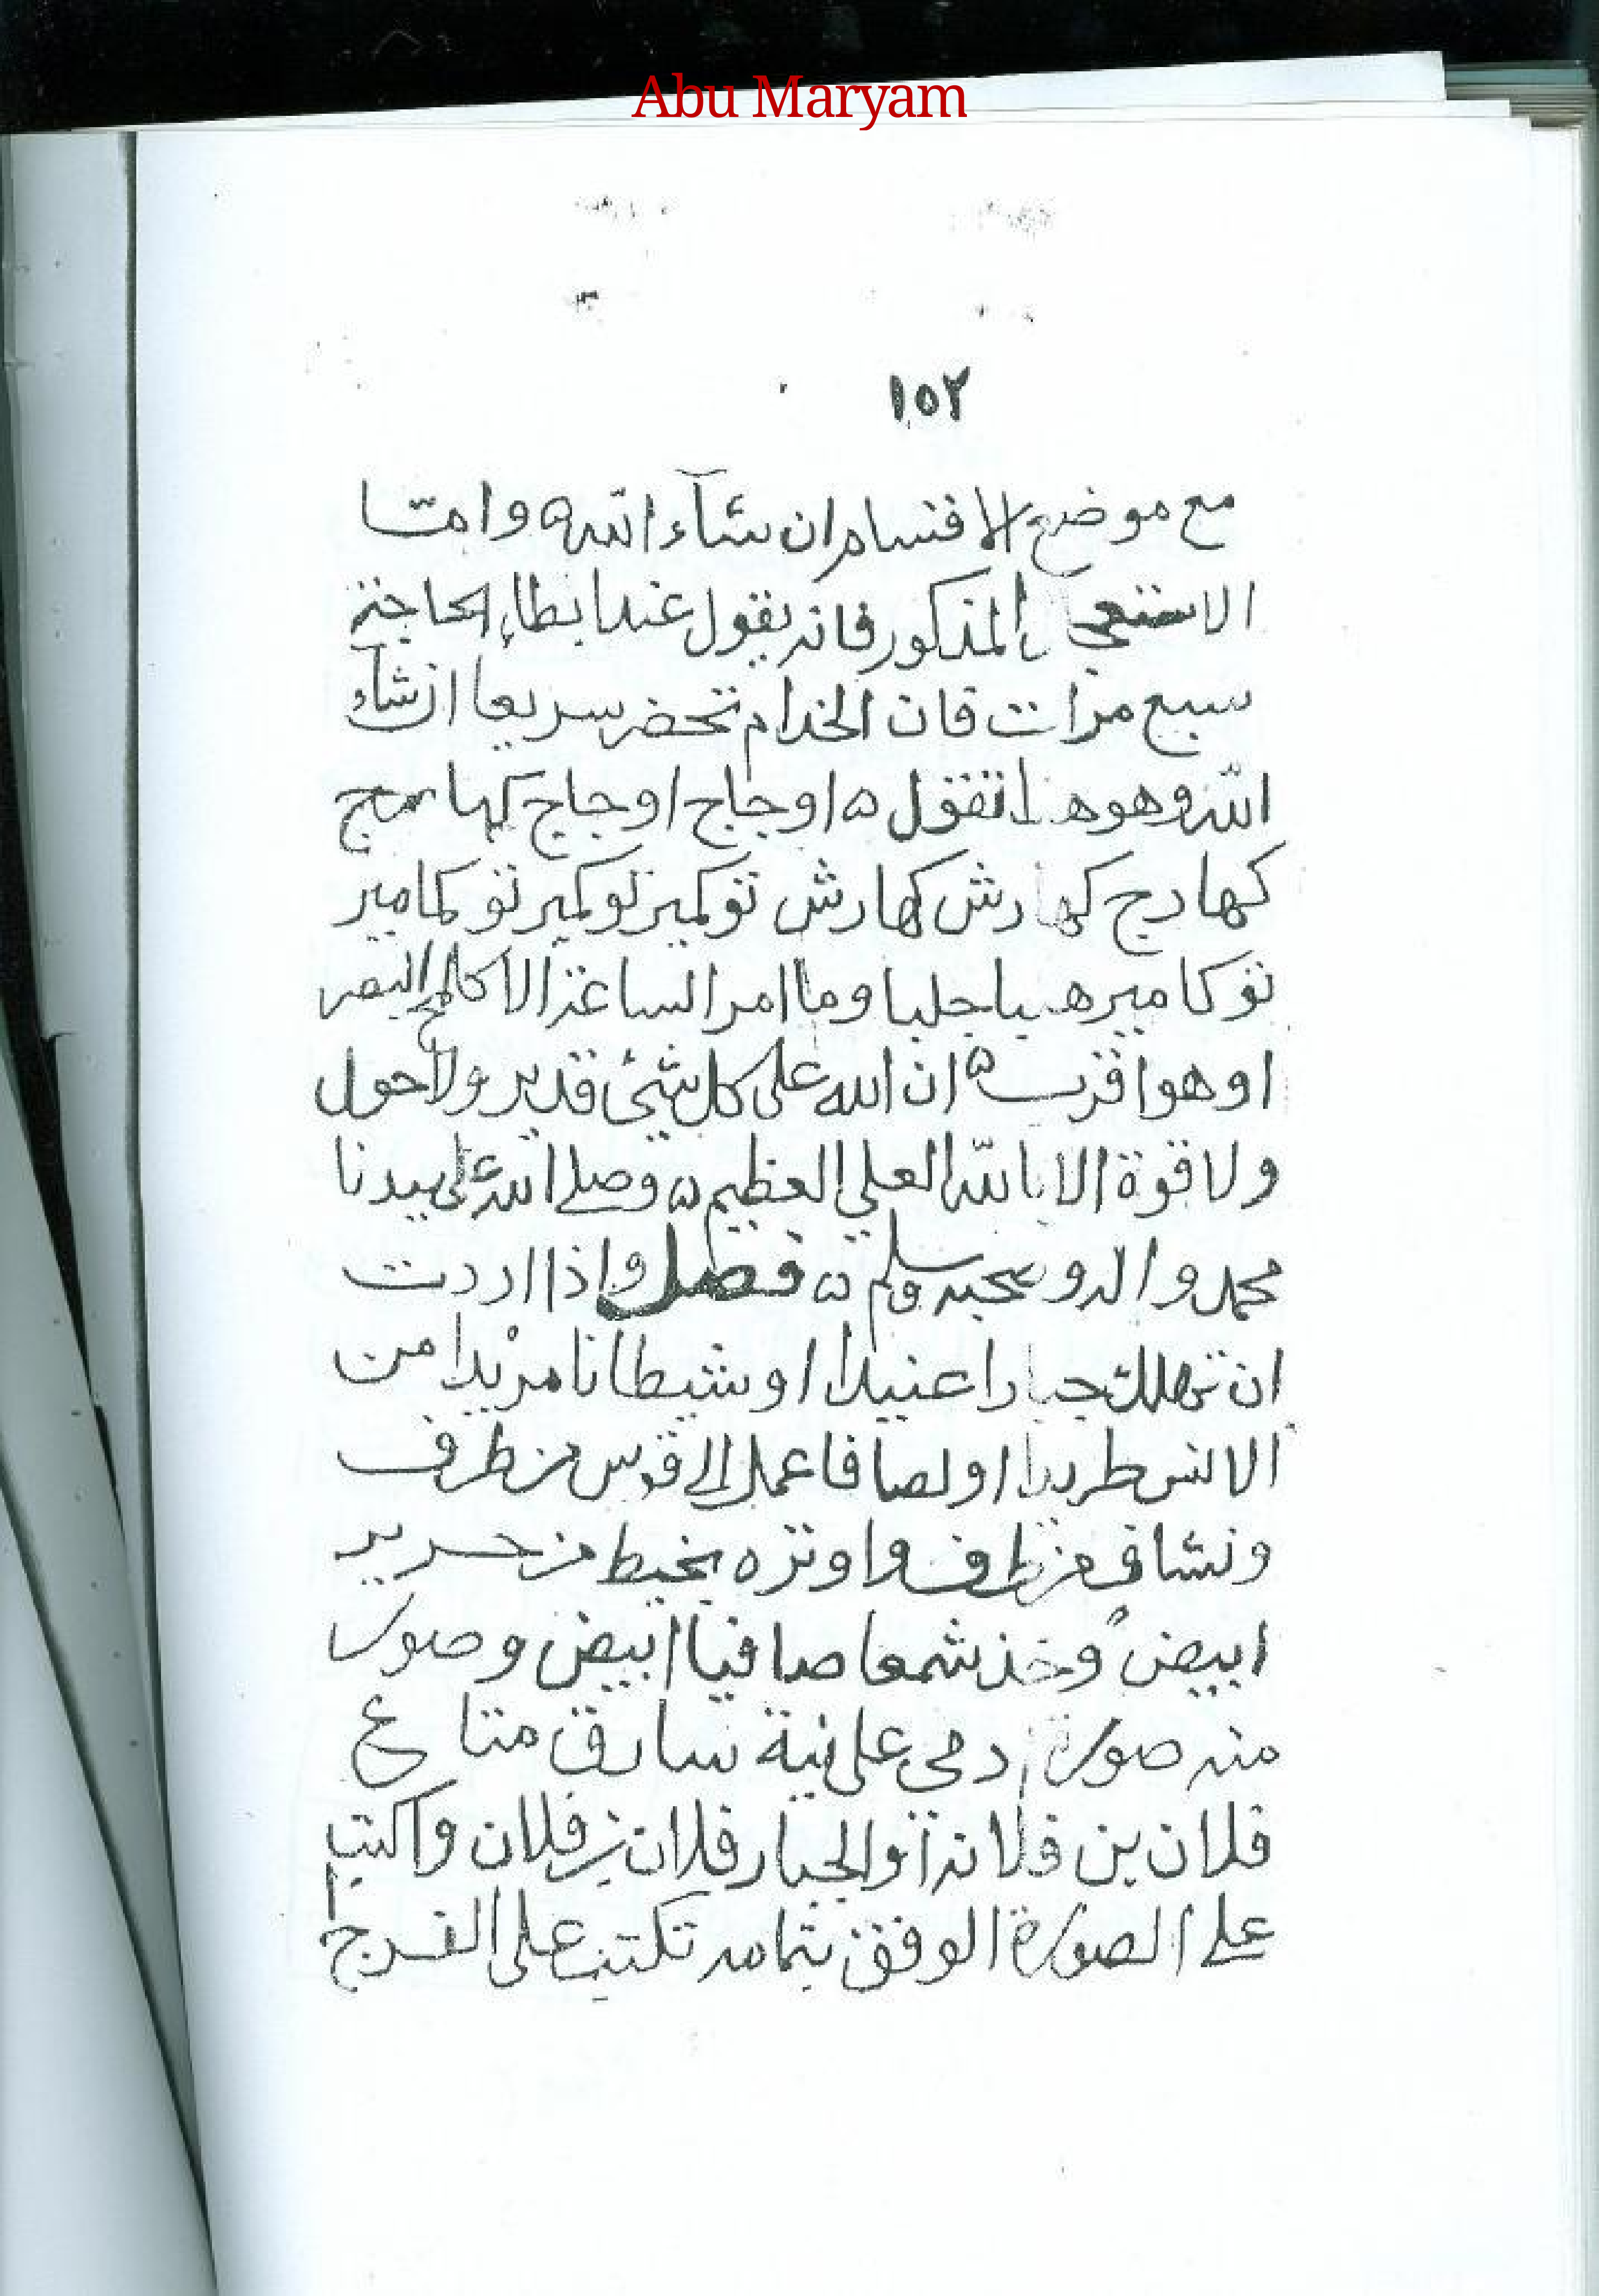 Abu Maryam
١٥٢
مع موضع الاقسام ان شآء الله وامّا
الاستعجال المذكور فانه يقول عند ابطاء الحاجة
سبع مرات فان الخدام تحضر سريعا انشاء
الله وهو هذا تقول ه اوجاج اوجاج كها
كهارج كهارش كهارش توكمير توكمير توكامير
توكامير هيا جلبا وما امر الساعة الا كلمح البصر
او هو اقرب ه ان الله على كل شئ قدير ولا حول
ولا قوة الا بالله العلي العظيم ه وصلى الله على سيدنا
محمد واله وصحبه وسلم ه فصل واذا اردت
ان تهلك جبارا عنيدا او شيطانا مريدا من
الانس طريدا او لصا فاعمل الى قوس من طرف
ونشاف من طرف واوتره بخيط من حرير
ابيض وخذ شمعا صافيا ابيض وصور
منه صورة ادمى على نية سارق متاع
فلان بن فلانة او الجبار فلان بن فلان واكتب
على الصورة الوفق بتمامه تكتب على الفرج